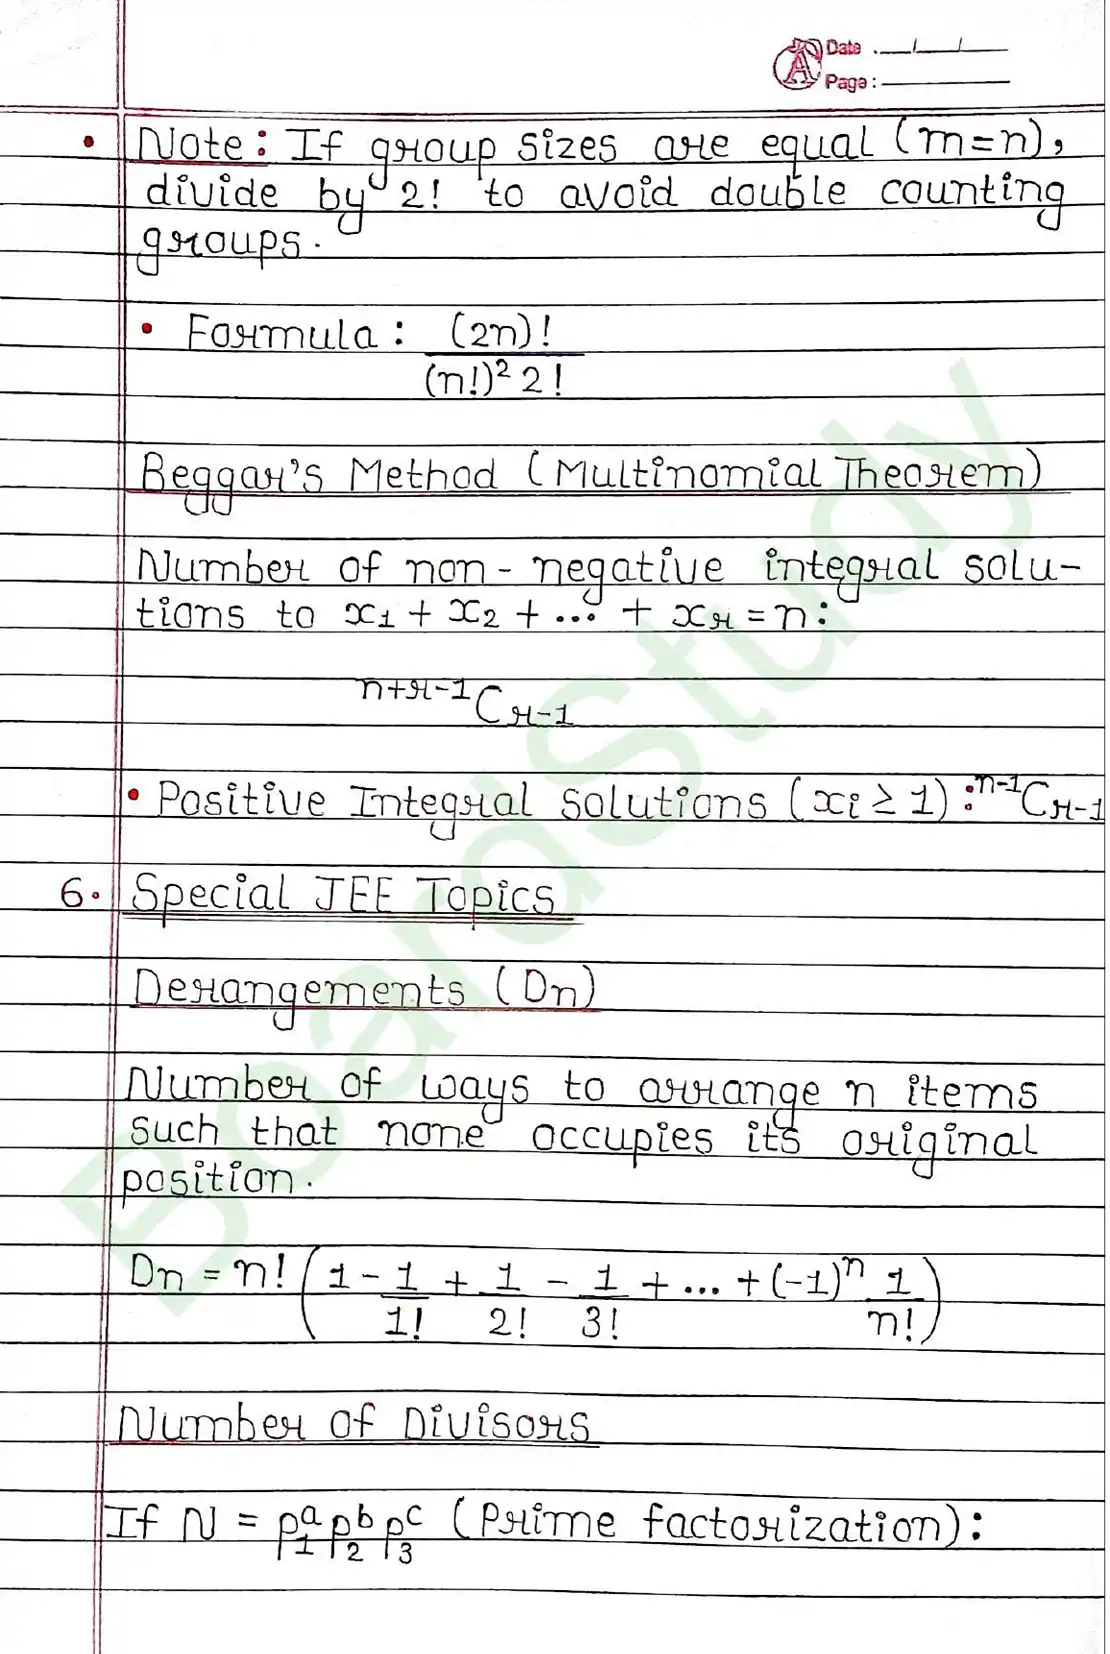 Date : __/__/__
Page :
• Note: If group sizes are equal (m=n),
divide by 2! to avoid double counting
groups.
• Formula : (2n)!
(n!)² 2!
Beggar's Method (Multinomial Theorem)
Number of non-negative integral solu-
tions to x₁ + x₂ + ... + xᵣ = n:
ⁿ⁺ʳ⁻¹Cᵣ₋₁
• Positive Integral solutions (xᵢ ≥ 1) : ⁿ⁻¹Cᵣ₋₁
6. Special JEE Topics
Derangements (Dn)
Number of ways to arrange n items
such that none occupies its original
position.
Dn = n! (1 - 1/1! + 1/2! - 1/3! + ... + (-1)ⁿ 1/n!)
Number of Divisors
If N = p₁ᵃ p₂ᵇ p₃ᶜ (Prime factorization):
BoardStudy